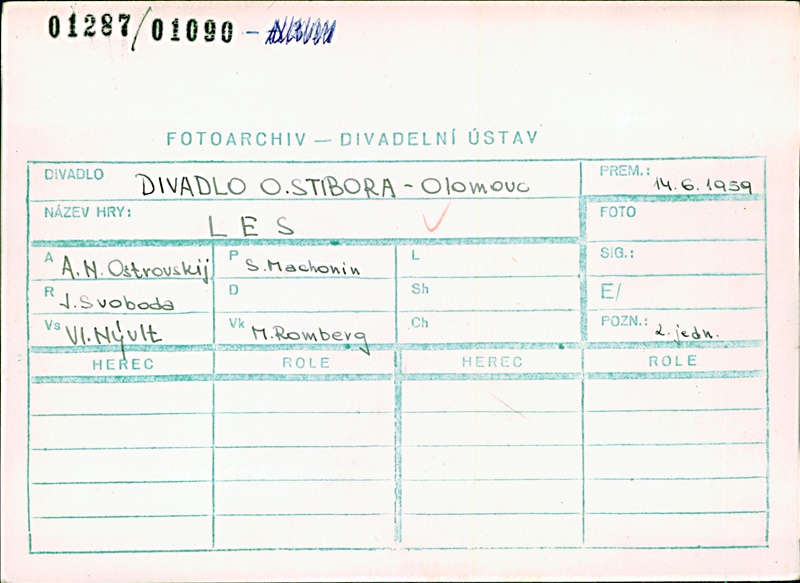 01287/01090 –
FOTOARCHIV — DIVADELNÍ ÚSTAV
DIVADLO DIVADLO O.STIBORA – Olomouc PREM.: 14.6.1959
NÁZEV HRY: LES FOTO
A A.N. Ostrovskij P S. Machonin L SIG.:
R J. Svoboda D Sh E/
Vs Vl. Nývlt Vk M. Romberg Ch POZN.: 2. jedn.
HEREC ROLE HEREC ROLE